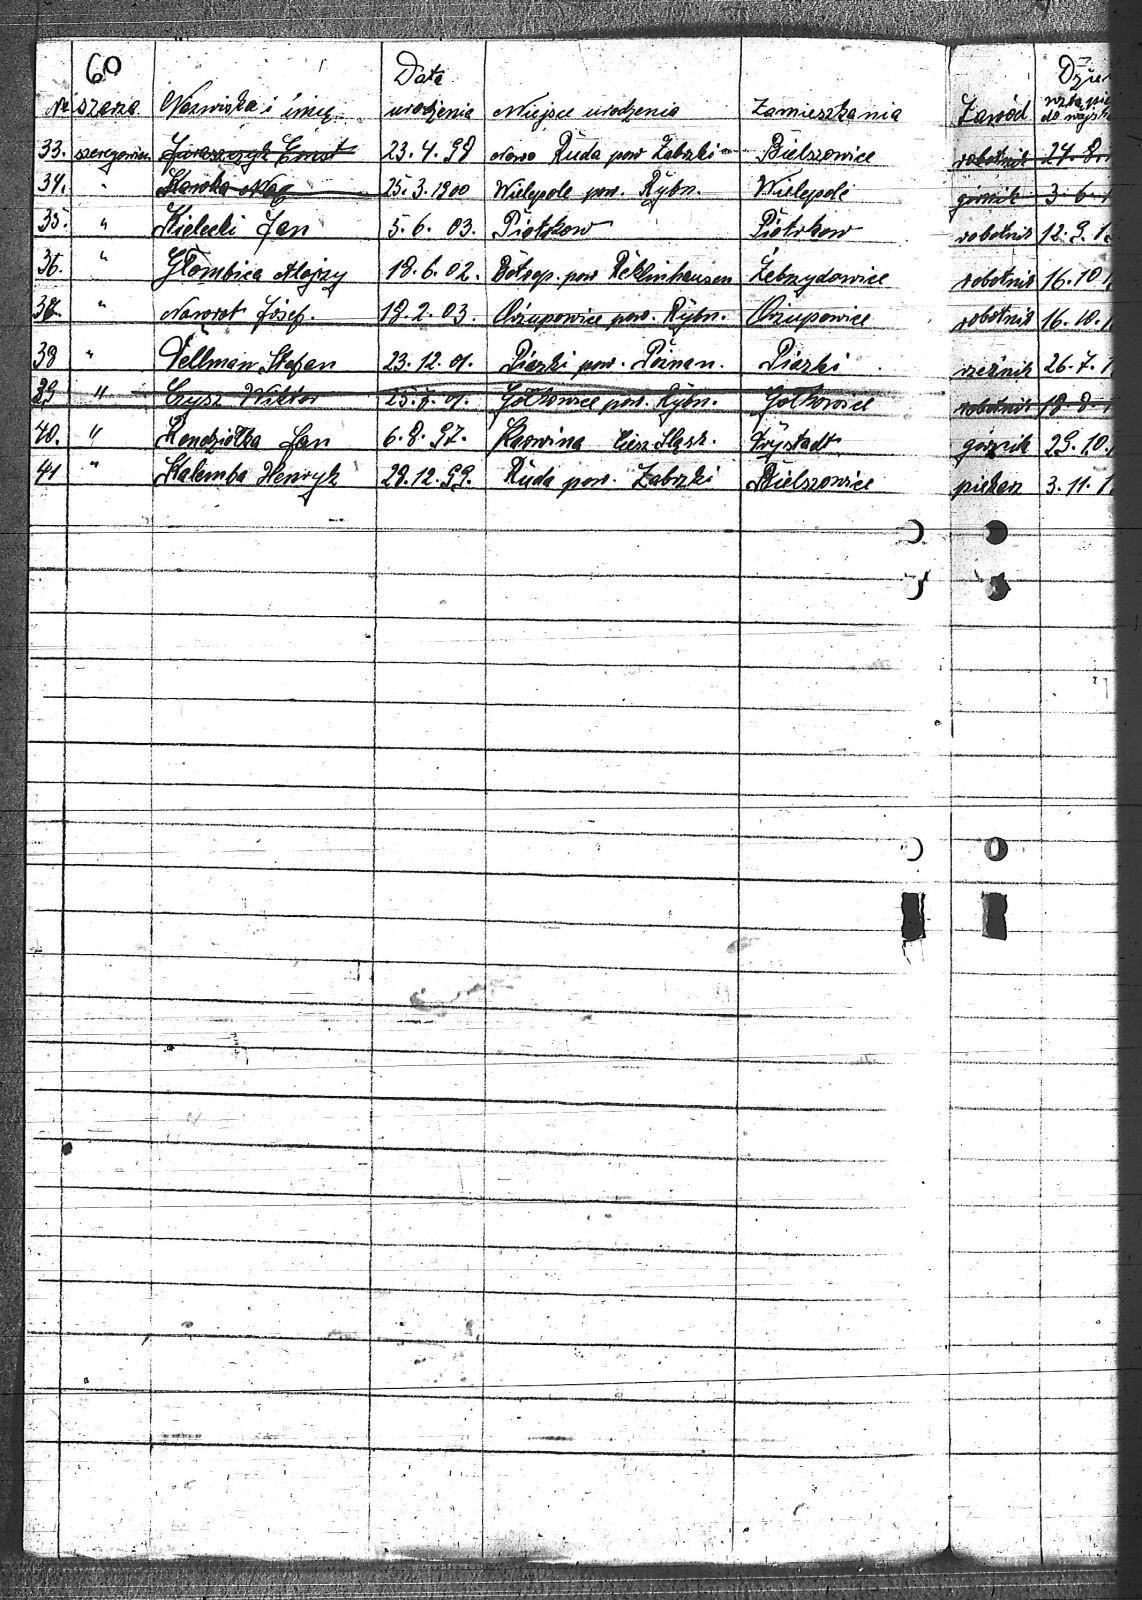 60
Data
Nr szarża Nazwiska i imię urodzenia Miejsce urodzenia Zamieszkania Zawód
33. szeregowiec Juraszczyk Ernst 23.4.98 Nowo Ruda pow Zabrzki Bielszowice robotnik 24.8.
34. " Sławka 25.3.1900 Wielepole pow. Rybn. Wielepole górnik 3.6.
35. " Kielecki Jan 5.6.03. Piotrkow Piotrkow robotnik 12.9.1
36. " Głombica Alojzy 18.6.02. pow Reklinhausen Zebrzydowice robotnik 16.10
37. " Nawrat Józef. 18.2.03. Orzupowice pow. Rybn. Orzupowice robotnik 16.10.1
38 " Vellman Stefan 23.12.01. Piaski pow. Poznan. Piaski rzeźnik 26.7.1
39 " Czysz Wiktor 25.7.01. Gołkowice pow. Rybn. Gołkowice robotnik 18.8.1
40. " Kendziołka Jan 6.8.97. Karwina Ciesz Śląsk. Frystadt górnik 29.10.
41 " Kalemba Henryk 28.12.99. Ruda pow. Zabrzki Bielszowice piekarz 3.11.1